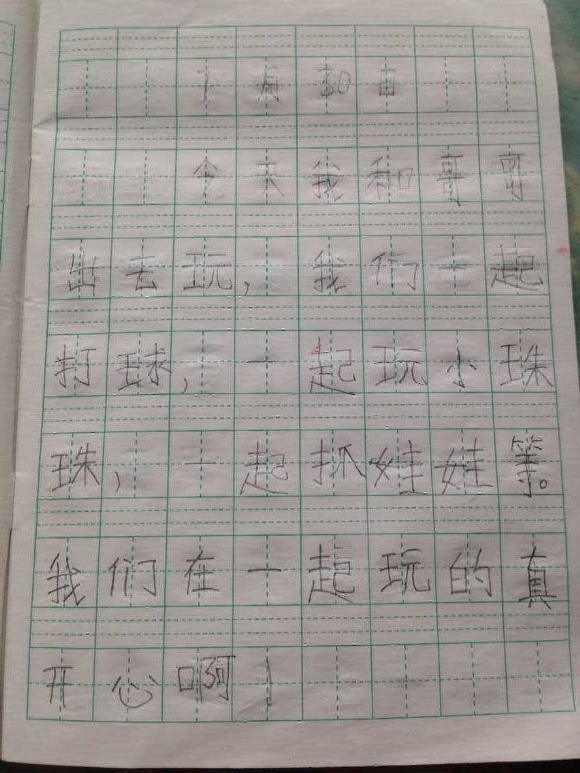 1月30日
今天我和哥哥
出去玩，我们一起
打球，一起玩小珠
珠，一起抓娃娃等。
我们在一起玩的真
开心啊！